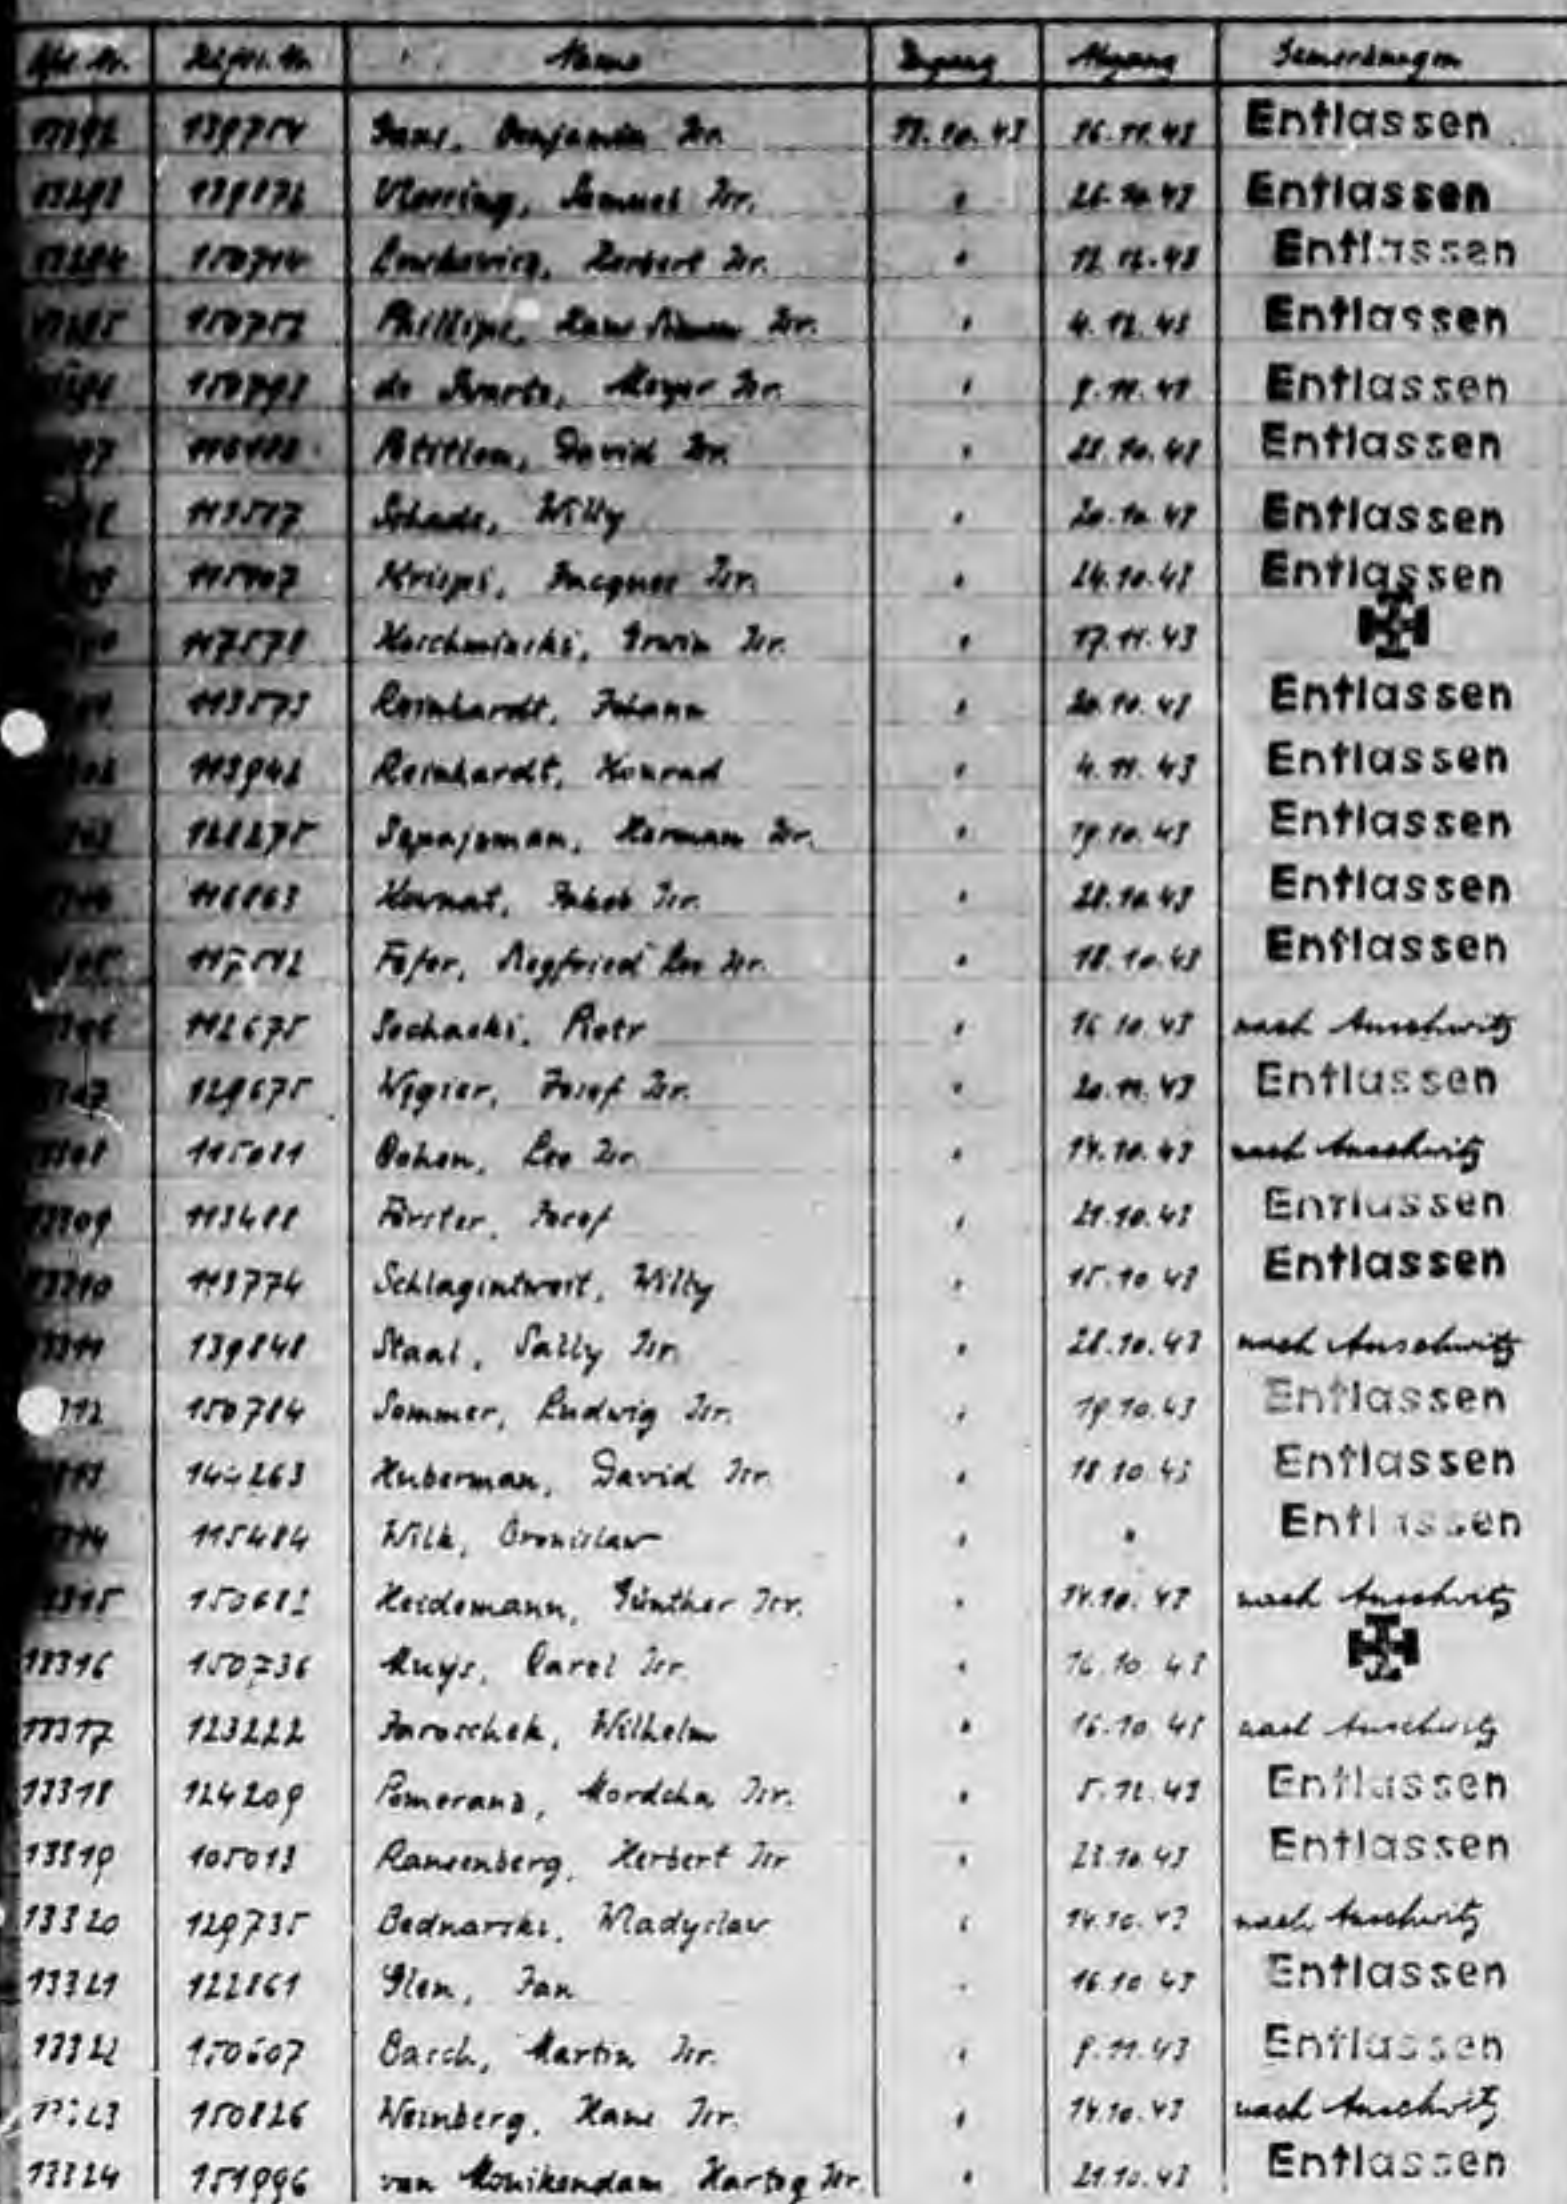 Lfd. Nr. Häftl. Nr. Name Zugang Abgang Bemerkungen
13292 139754 Gans, Benjamin Isr. 13.10.43 16.11.43 Entlassen
13293 Samuel Isr. " 26.10.43 Entlassen
13294 Herbert Isr. " 12.12.43 Entlassen
150752 Phillips, Hans Isr. " 4.12.43 Entlassen
150793 de Isr. " 9.11.43 Entlassen
David Isr. " 28.10.43 Entlassen
Schade, Willy " 20.10.43 Entlassen
Krispi, Jacques Isr. " 24.10.43 Entlassen
117578 Koschminski, Erwin Isr. " 17.11.43
113573 Reinhardt, Johann " 20.10.43 Entlassen
113942 Reinhardt, Konrad " 4.11.43 Entlassen
128275 Herman Isr. " 19.10.43 Entlassen
116863 Jakob Isr. " 28.10.43 Entlassen
117512 Siegfried Leo Isr. " 18.10.43 Entlassen
112675 Sochacki, Piotr " 16.10.43 nach Auschwitz
129675 Wygier, Josef Isr. " 20.11.43 Entlassen
115081 Cohen, Leo Isr. " 14.10.43 nach Auschwitz
13309 113488 Förster, Josef " 21.10.43 Entlassen
13310 113774 Schlagintweit, Willy " 15.10.43 Entlassen
13311 139848 Staal, Sally Isr. " 28.10.43 nach Auschwitz
312 150784 Sommer, Ludwig Isr. " 19.10.43 Entlassen
Huberman, David Isr. " 18.10.43 Entlassen
115484 Wilk, Bronislaw " " Entlassen
13315 150682 Heidemann, Günther Isr. " 14.10.43 nach Auschwitz
13316 150736 Muys, Carel Isr. " 16.10.43
13317 123222 Jaroschek, Wilhelm " 16.10.43 nach Auschwitz
13318 124209 Pomeranz, Mordcha Isr. " 5.12.43 Entlassen
13319 105013 Ransenberg, Herbert Isr. " 23.10.43 Entlassen
13320 129735 Bednarski, Wladyslaw " 14.10.43 nach Auschwitz
13321 122861 Glen, Jan " 16.10.43 Entlassen
13322 150607 Basch, Martin Isr. " 9.11.43 Entlassen
13323 150826 Weinberg, Hans Isr. " 14.10.43 nach Auschwitz
13324 151996 van Monikendam Hartog Isr. " 21.10.43 Entlassen